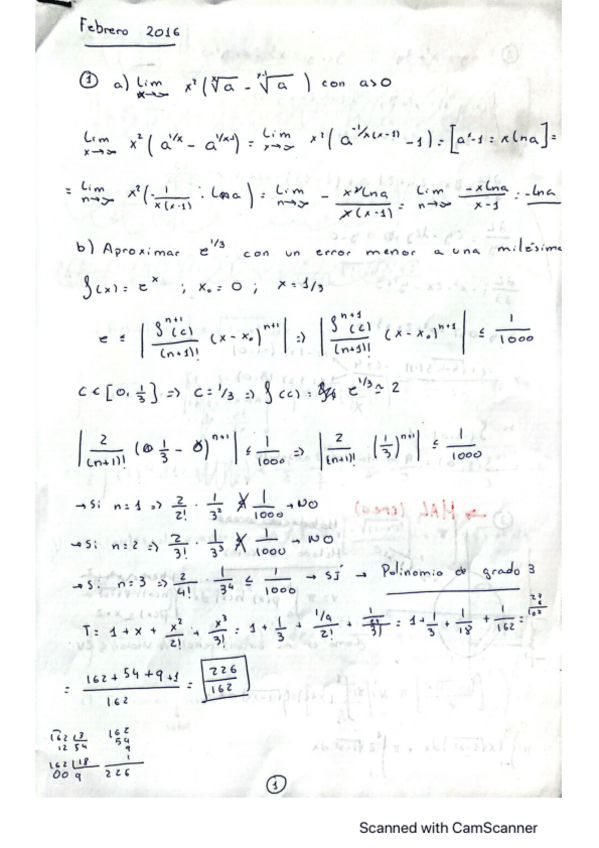 Febrero 2016
① a) Lim x→∞ x² (ˣ√a - ˣ⁻¹√a) con a>0
Lim x→∞ x² (a^{1/x} - a^{1/x-1}) = Lim x→∞ x² (a^{-1/x(x-1)} - 1) = [a^x-1 = x ln a] =
= Lim n→∞ x² (-1/x(x-1) · Lna) = Lim n→∞ - x² Lna / x(x-1) = Lim n→∞ -x Lna / x-1 = -lna
b) Aproximar e^{1/3} con un error menor a una milésima
f(x) = e^x ; x₀ = 0 ; x = 1/3
e ≤ | f^{n+1}(c) / (n+1)! (x-x₀)^{n+1} | => | f^{n+1}(c) / (n+1)! (x-x₀)^{n+1} | ≤ 1/1000
C ∈ [0, 1/3] => C = 1/3 => f(c) = e^{1/3} ≈ 2
| 2/(n+1)! (1/3 - 0)^{n+1} | ≤ 1/1000 => | 2/(n+1)! (1/3)^{n+1} | ≤ 1/1000
→ Si n=1 => 2/2! · 1/3² ≰ 1/1000 → NO
→ Si n=2 => 2/3! · 1/3³ ≰ 1/1000 → NO
→ Si n=3 => 2/4! · 1/3⁴ ≤ 1/1000 → SÍ → Polinomio de grado 3
T = 1 + x + x²/2! + x³/3! = 1 + 1/3 + 1/9/2! + 1/27/3! = 1 + 1/3 + 1/18 + 1/162 =
= 162 + 54 + 9 + 1 / 162 = 226/162
162 3 162
12 54 54
9
162 18 1
00 9 226
①
Scanned with CamScanner